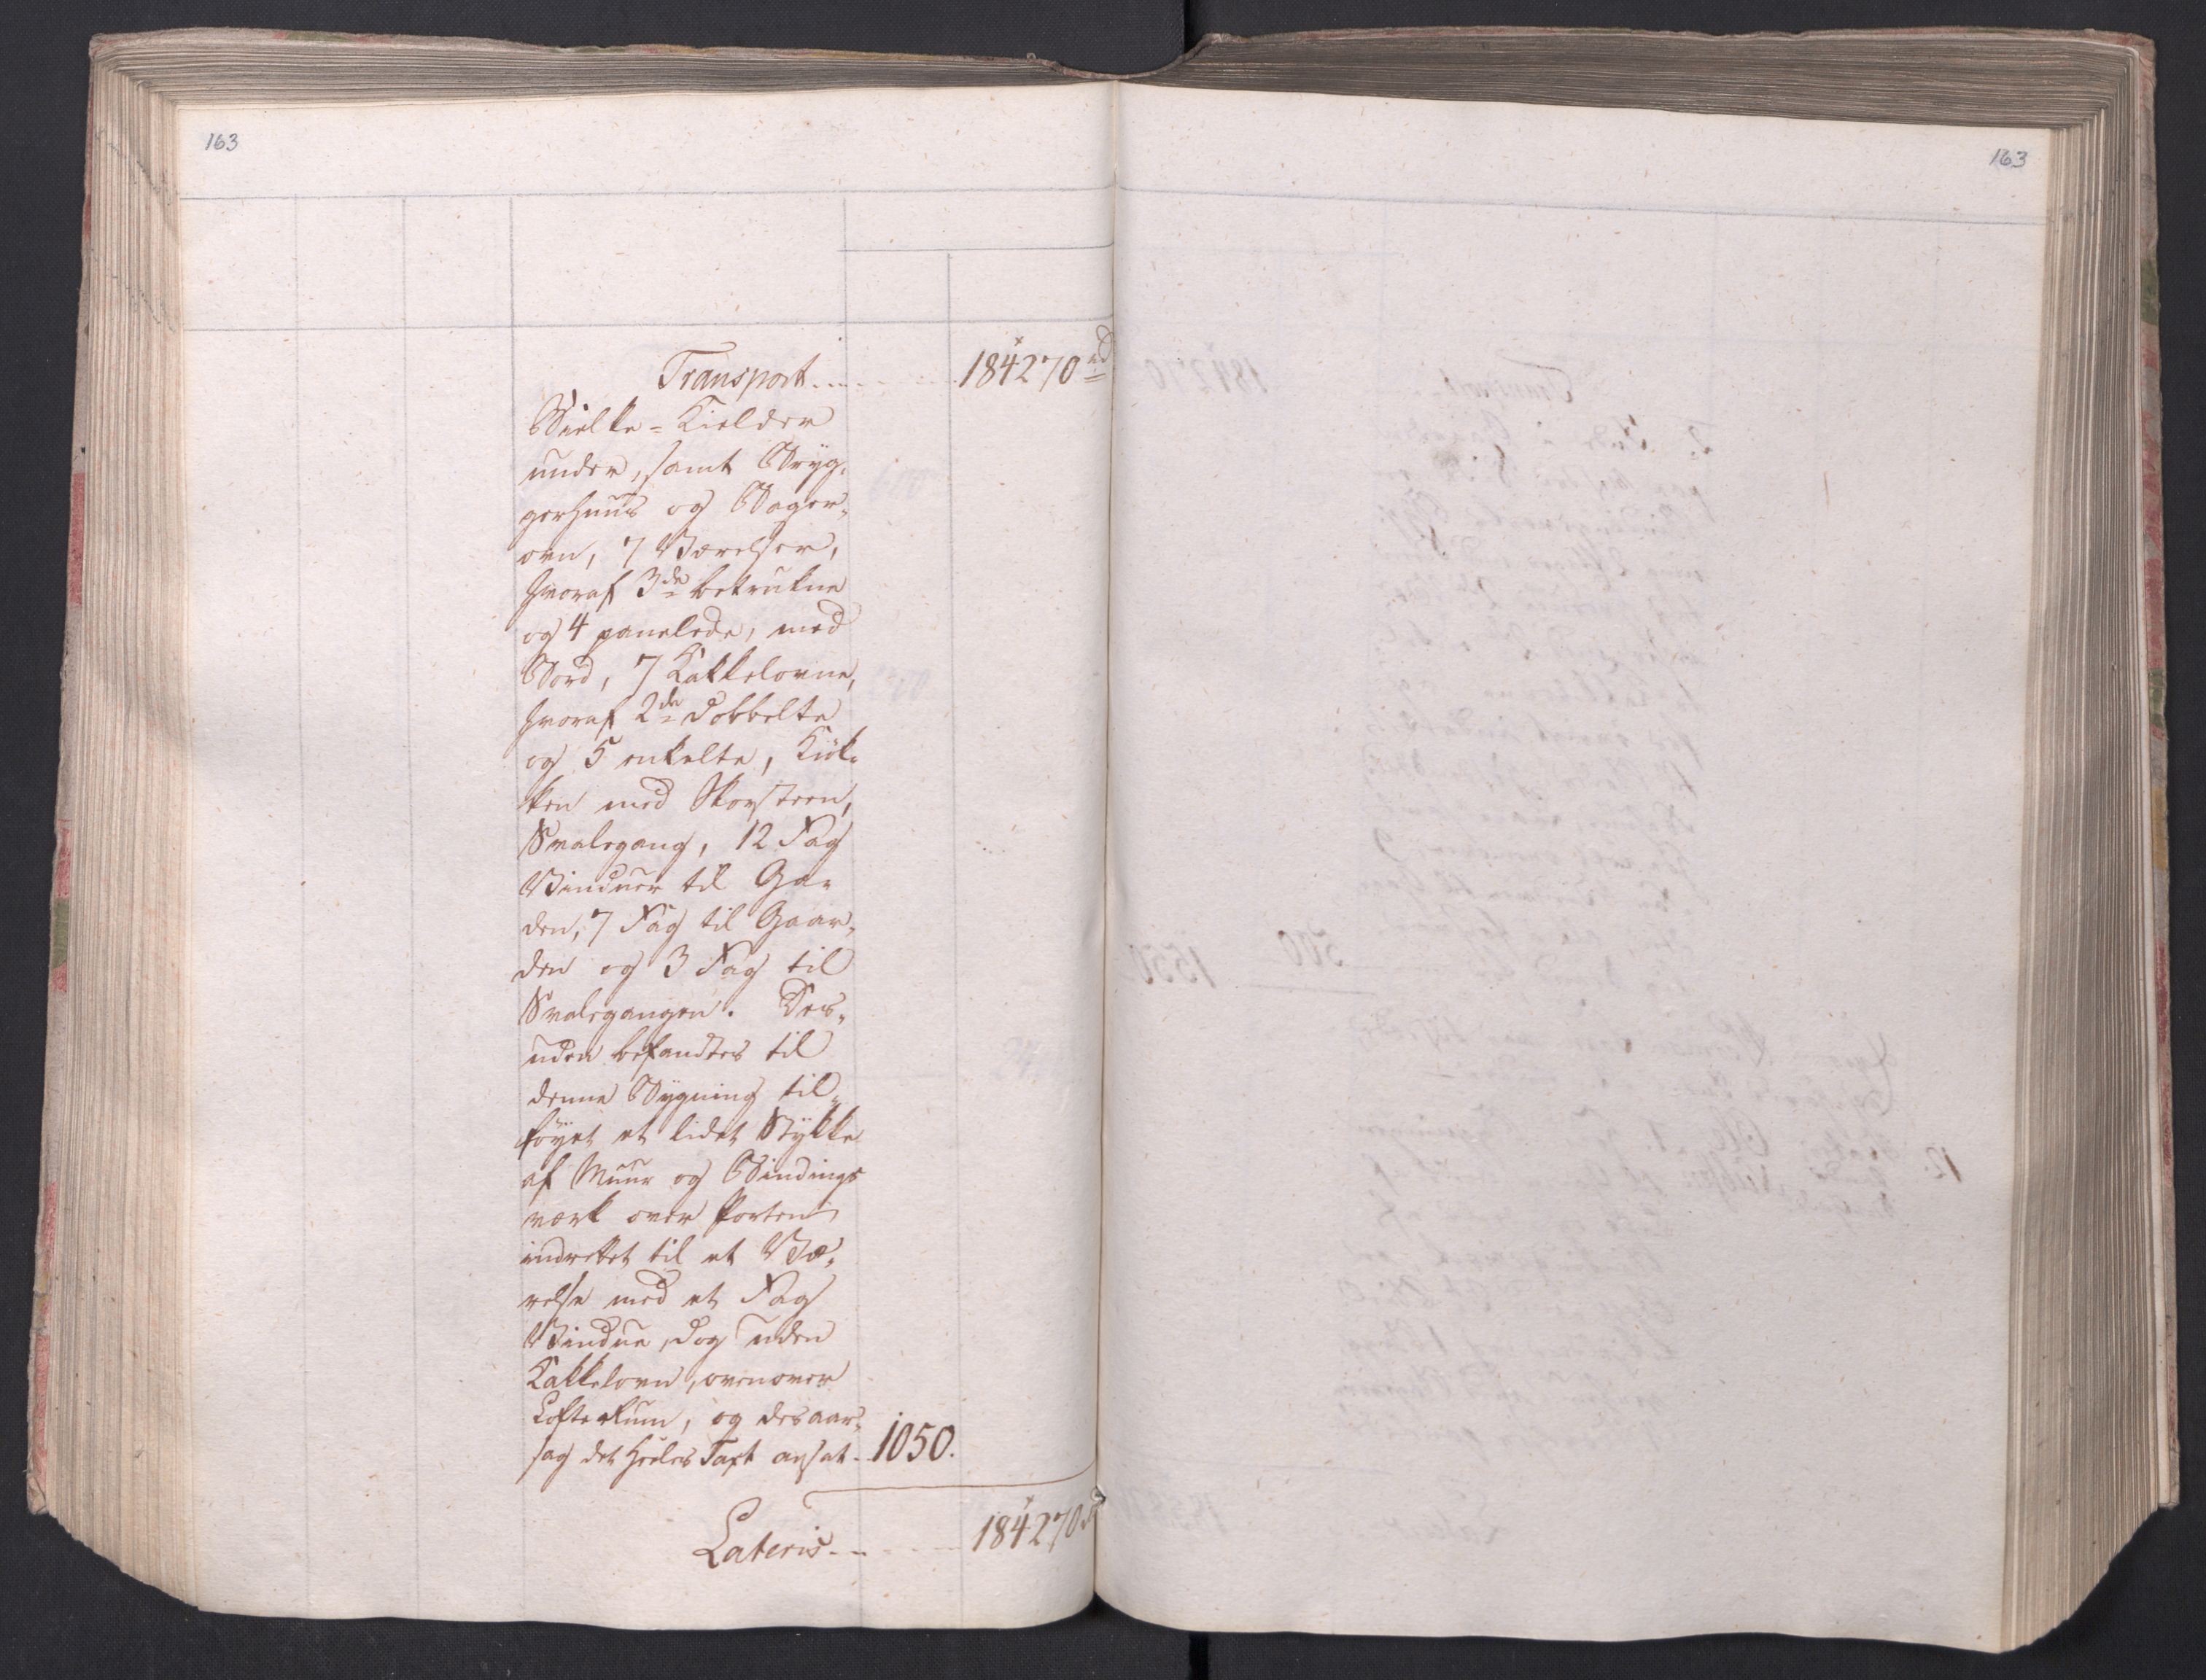 163
163
Transport..... 184270 rd
Bielke-Kielder
under, samt Bryg-
gerhuus og Bager-
ovn, 7 Værelser,
hvoraf 3de betrukne
og 4 panelede, med
Bord, 7 Kakkelovne,
hvoraf 2de dobbelte
og 5 enkelte, Kiøk-
ken med Skorsteen,
Svalegang, 12 Fag
Vinduer til Ga-
den, 7 Fag til Gaar-
den og 3 Fag til
Svalegangen. Des-
uden befandtes til
denne Bygning til-
føyet et lidet Stykke
af Muur og Bindings
værk over Porten
indrettet til et Væ-
relse med et Fag
Vindue, dog uden
Kakkelovn, ovenover
Lofterum, og desaar-
sag det heeles Taxt ansat. 1050.
Lateris..... 184270 rd